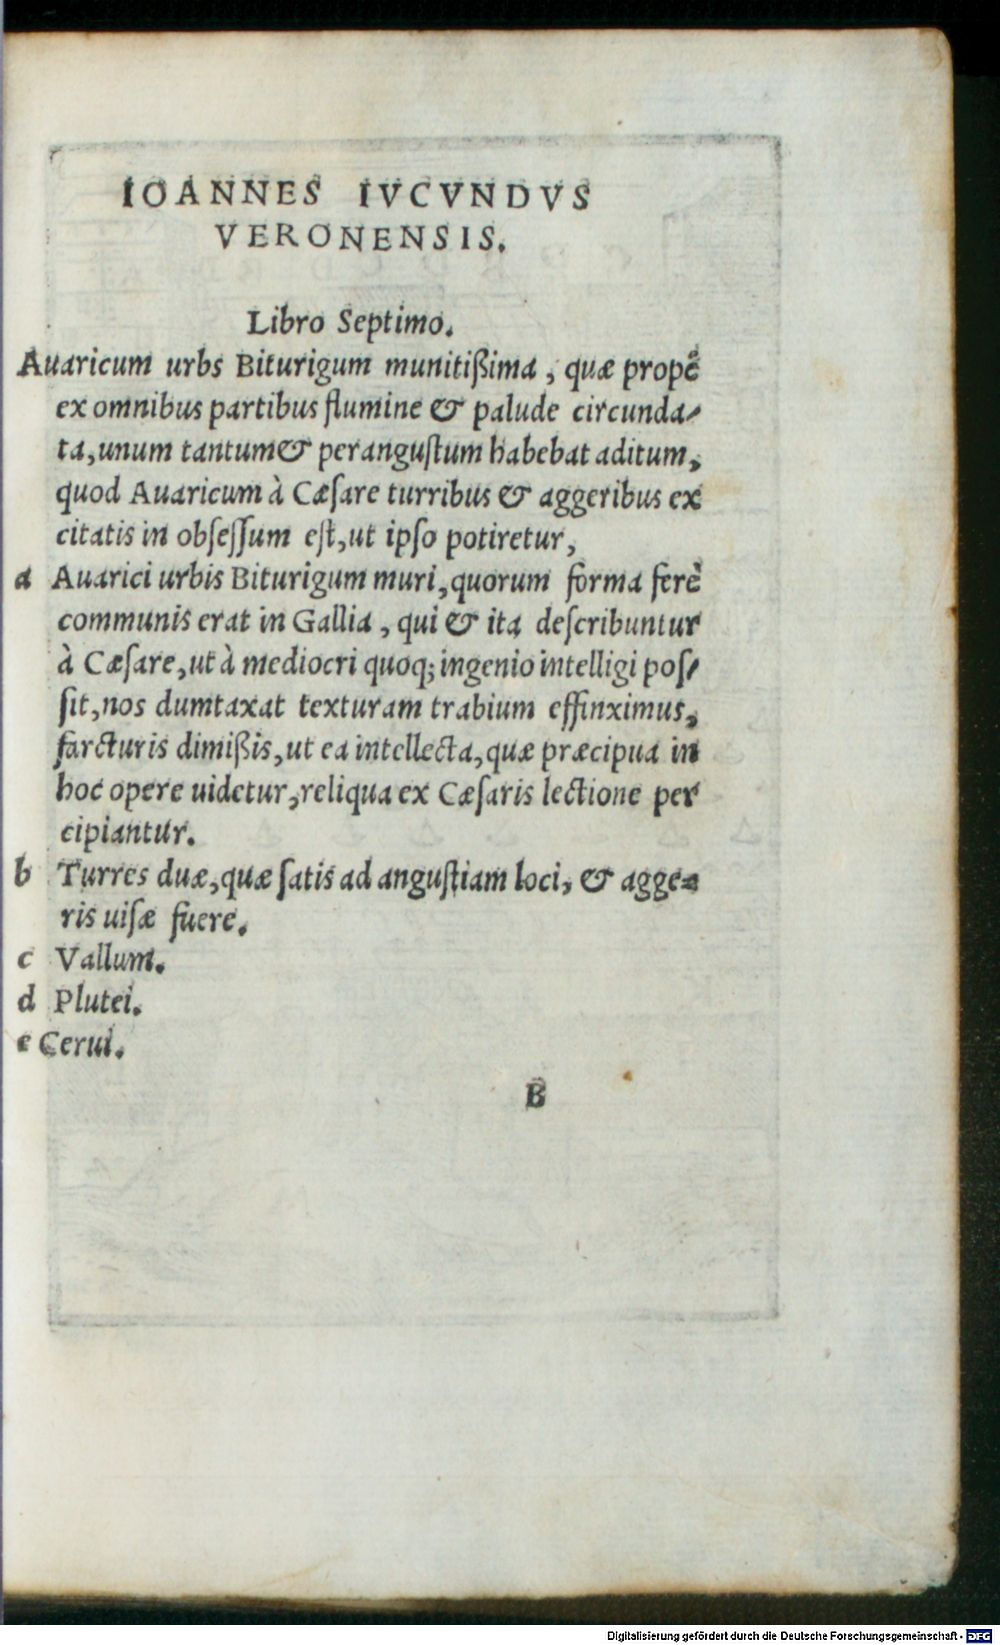 IOANNES IVCVNDVS
VERONENSIS.
Libro Septimo.
Auaricum urbs Biturigum munitißima, quæ propè
ex omnibus partibus flumine & palude circunda-
ta, unum tantum & perangustum habebat aditum,
quod Auaricum à Cæſare turribus & aggeribus ex
citatis in obſeſſum eſt, ut ipſo potiretur,
a Auarici urbis Biturigum muri, quorum forma ferè
communis erat in Gallia, qui & ita deſcribuntur
à Cæſare, ut à mediocri quoq; ingenio intelligi poſ-
ſit, nos dumtaxat texturam trabium effinximus,
farcturis dimißis, ut ea intellecta, quæ præcipua in
hoc opere uidetur, reliqua ex Cæſaris lectione per
cipiantur.
b Turres duæ, quæ ſatis ad anguſtiam loci, & agge-
ris uiſæ fuere.
c Vallum.
d Plutei.
e Cerui.
B
Digitalisierung gefördert durch die Deutsche Forschungsgemeinschaft - DFG